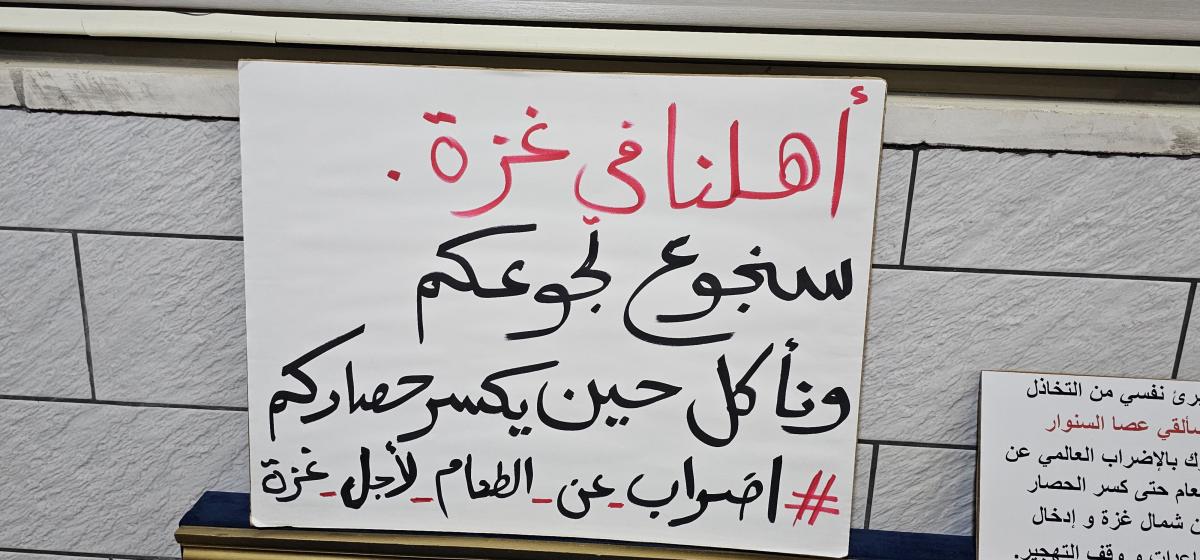 أهلنا في غزة .
سنجوع لجوعكم
ونأكل حين يكسر حصاركم
#اضراب_عن_الطعام_لأجل_غزة
برئ نفسي من التخاذل
سألقي عصا السنوار
ك بالإضراب العالمي عن
عام حتى كسر الحصار
ن شمال غزة و إدخال
و وقف التهجير.